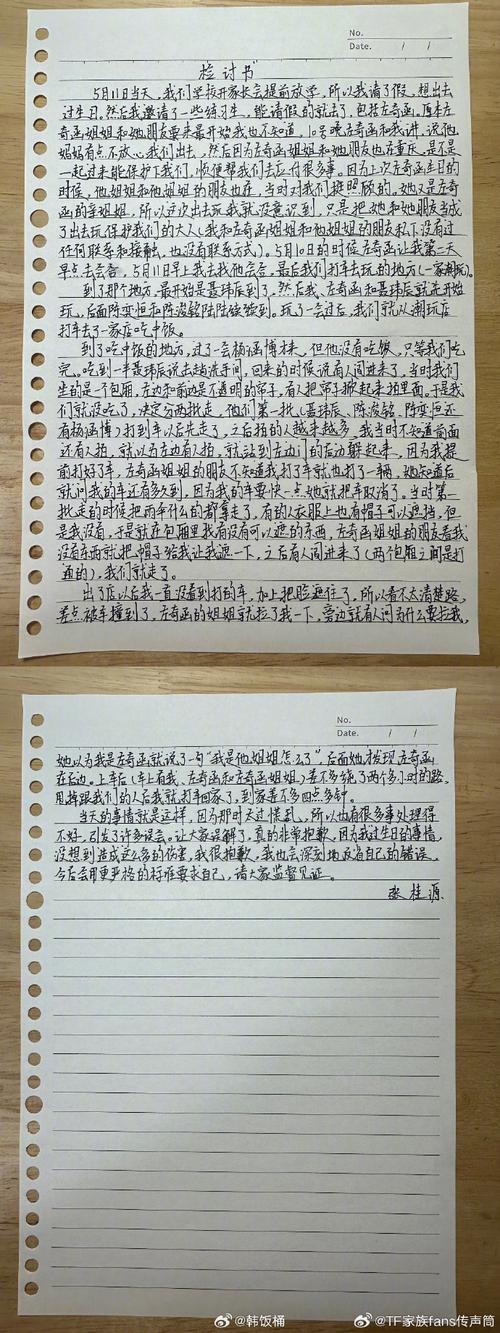 No.
Date. / /
检讨书
5月11日当天，我们学校开家长会提前放学，所以我请了假，想出去
过生日。然后我邀请了一些练习生，能请假的就去了，包括左奇函。原本左
奇函姐姐和她朋友要来最开始我也不知道，10号晚左奇函和我讲，说他
妈妈有点不放心我们出去，然后因为左奇函姐姐和她朋友也在重庆，是不是
一起过来能保护下我们，顺便帮我们去应付很多事。因为上次左奇函生日的
时候，他姐姐和他姐姐的朋友也在，当时对我们挺照顾的，她又是左奇
函的亲姐姐，所以这次出去玩我就没意识到，只是把她和她朋友当成
了出去玩保护我们的大人（我和左奇函姐姐和他姐姐的朋友私下没有过
任何联系和接触，也没有联系方式）。5月10日的时候左奇函让我第二天
早点去会合，5月11日早上我去找他会合，最后我们打车去玩的地方（一家潮玩）。
到了那个地方，最开始是聂玮辰到了，然后我、左奇函和聂玮辰就先开始
玩，后面陈奕恒和陈浚铭陆陆续续到。玩了一会过后，我们就从潮玩店
打车去了一家店吃中饭。
到了吃中饭的地方，过了一会杨涵博才来，但他没有吃饭，只等我们吃
完。吃到一半聂玮辰说出去趟洗手间，回来的时候说有人闯进来了，当时我们
坐的是一个包厢，左边和前边是不透明的帘子，有人把帘子掀起来拍里面。于是我
们就没吃了，决定分两批走，他们第一批（聂玮辰、陈浚铭、陈奕恒还
有杨涵博）打到车以后先走了，之后拍的人越来越多，我当时不知道前面
还有人拍，就以为左边有人拍，就站到左边门的后边躲起来，因为我提
前打好了车，左奇函姐姐的朋友不知道我打了车就也打了一辆，她知道后
就问我的车还有多久到，因为我的车要快一点她就把车取消了，当时第一
批走的时候把雨伞什么的都拿走了，有的人衣服上也有帽子可以遮挡，但
是我没有，于是就在包厢里找有没有可以遮的东西，左奇函姐姐的朋友看我
没有东西就把帽子给我让我遮一下，之后有人闯进来了（两个包厢之间是打
通的），我们就走了。
出了店以后我一直没看到打的车，加上把脸遮住了，所以看不太清楚路，
差点被车撞到了，左奇函的姐姐就拉了我一下，旁边就有人问为什么要拉我，
No.
Date. / /
她以为我是左奇函就说了一句“我是他姐姐怎么了”，后面她才发现左奇函
在后边。上车后（车上有我、左奇函和左奇函姐姐）差不多绕了两个多小时的路，
甩掉跟我们的人后我就打车回家了，到家差不多四点多钟。
当天的事情就是这样，因为那时太慌乱，所以也有很多事处理得
不好，引发了许多误会。让大家误解了，真的非常抱歉，因为我过生日的事情，
没想到造成这么多的伤害，我很抱歉，我也会深刻地反省自己的错误，
今后会用更严格的标准要求自己，请大家监督见证。
张桂源
@韩饭桶
@TF家族fans传声筒